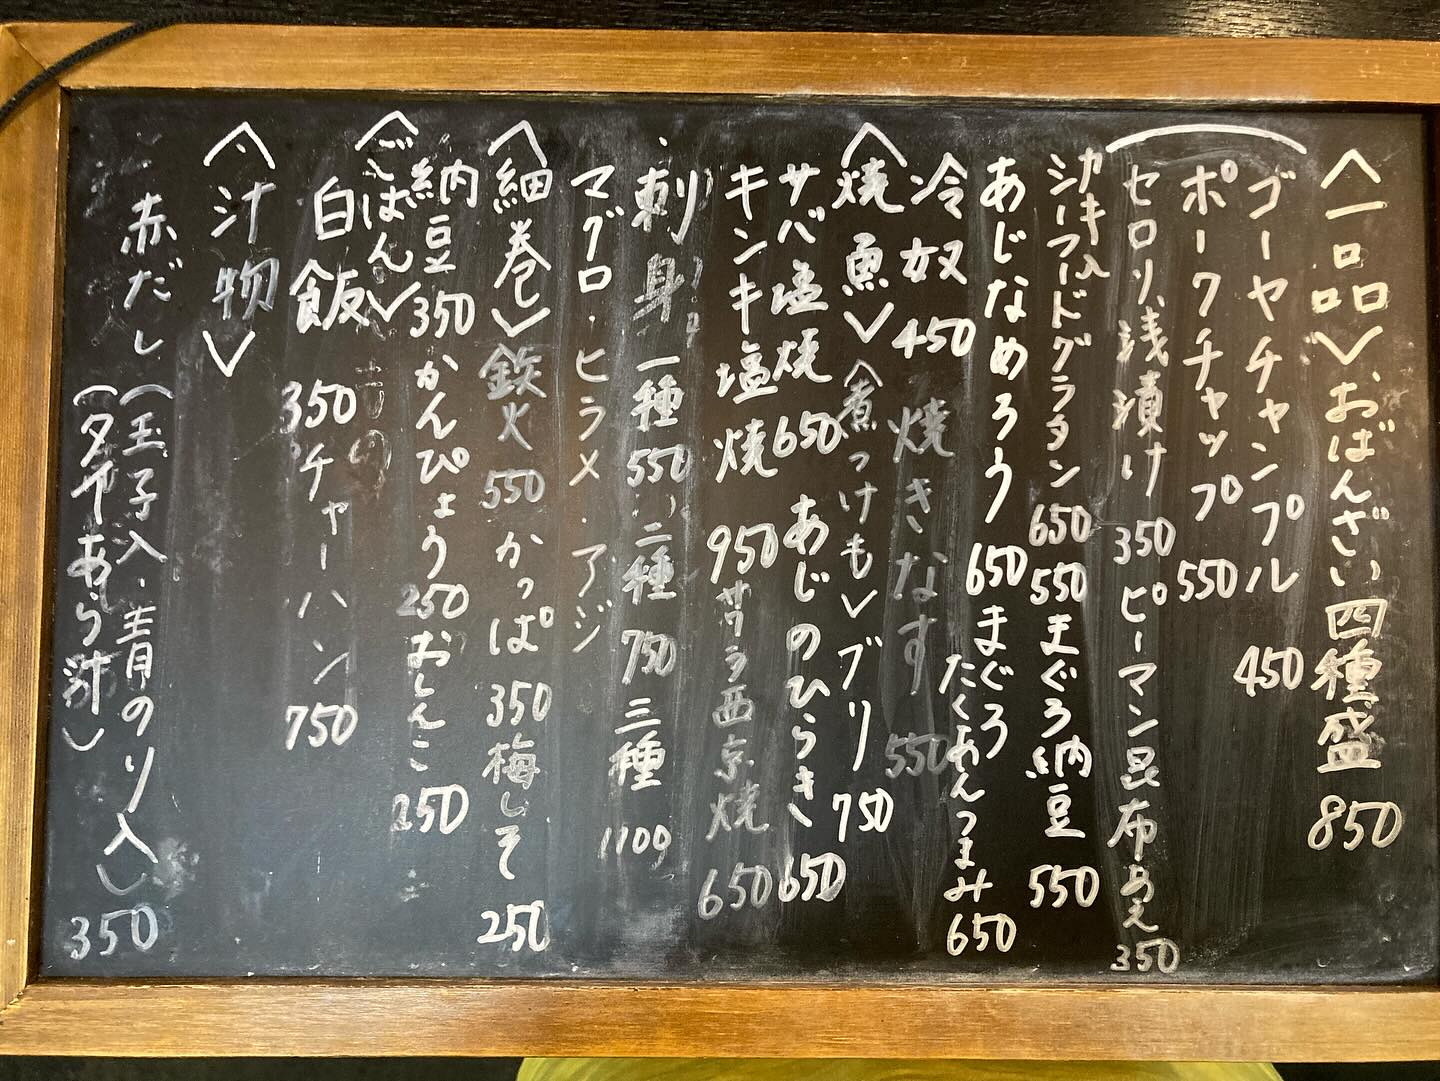 〈一品〉おばんざい四種盛 850
ゴーヤチャンプル 450
ポークチャップ 550
セロリ浅漬け 350 ピーマン昆布あえ 350
カキ入
シーフードグラタン 650 550 まぐろ納豆 550
あじなめろう 650 まぐろたくあんつまみ 650
冷奴 450 焼きなす 550
〈焼魚〉〈煮つけも〉ブリ 750
サバ塩焼 650 あじのひらき 650
キンキ塩焼 950 サワラ西京焼 650
刺身 一種 550 二種 750 三種 1100
マグロ・ヒラメ・アジ
〈細巻〉鉄火 550 かっぱ 350 梅しそ 250
納豆 350 かんぴょう 250 おしんこ 250
〈ごはん〉
白飯 350 チャーハン 750
〈汁物〉
赤だし (玉子入・青のり入) 350
(タヤあら汁)